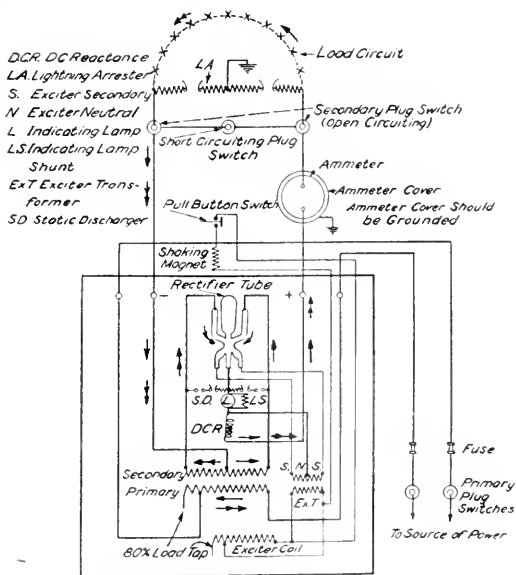 D.C.R. DC Reactance
L.A. Lightning Arrester
S. Exciter Secondary
N Exciter Neutral
L Indicating Lamp
L.S. Indicating Lamp
Shunt
Ex T Exciter Trans-
former
S.D Static Discharger
L A
Load Circuit
Secondary Plug Switch
(Open Circuiting)
Short Circuiting Plug
Switch
Ammeter
Ammeter Cover
Ammeter Cover Should
be Grounded
Pull Button Switch
Shaking
Magnet
Rectifier Tube
-
+
S.D.
L
L.S.
DCR
S. N. S.
Secondary
Primary
Ex T
80% Load Tap
Exciter Coil
Fuse
Primary
Plug
Switches
To Source of Power